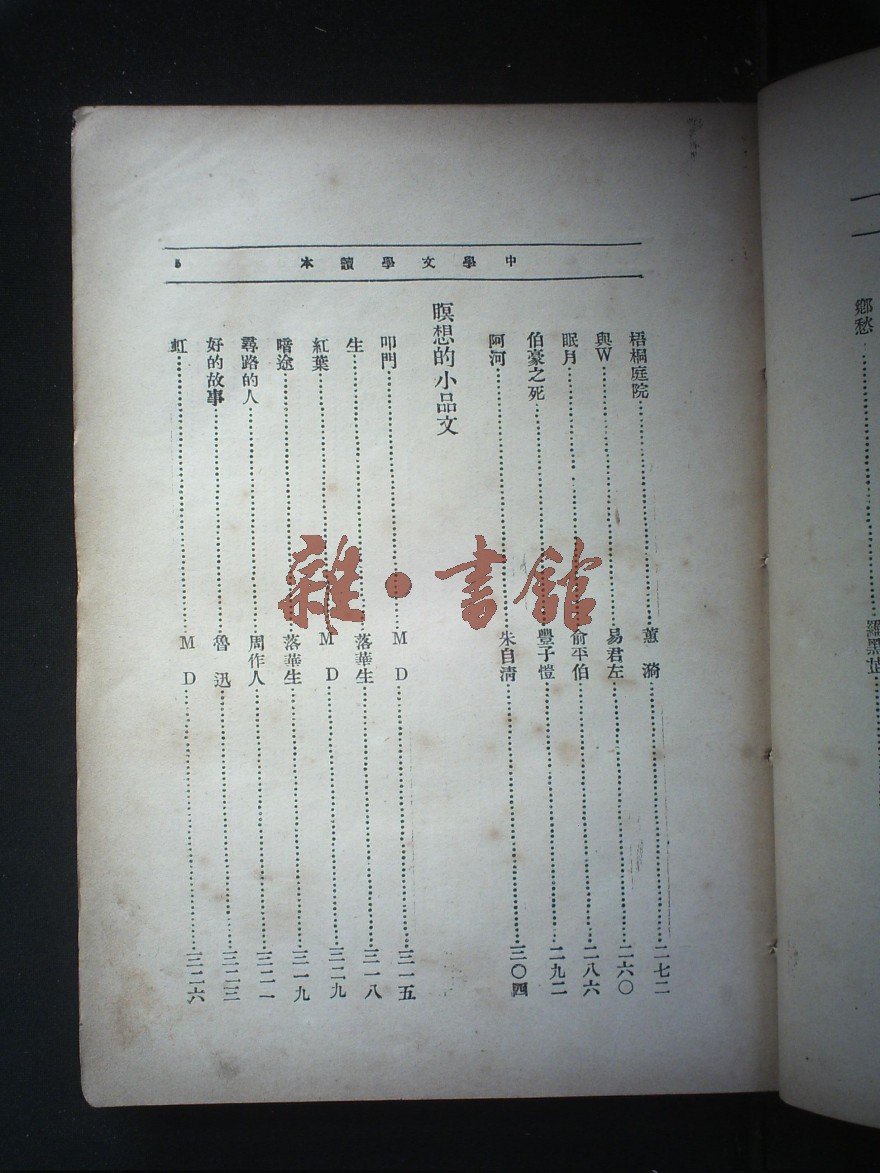 中學文學讀本 5
梧桐庭院 蕙漪 二七二
與W 易君左 二六〇
眠月 俞平伯 二八六
伯豪之死 豐子愷 二九二
阿河 朱自清 三〇四
暝想的小品文
叩門 M D 三一五
生 落華生 三一八
紅葉 M D 三二九
暗途 落華生 三一九
尋路的人 周作人 三二一
好的故事 魯迅 三二三
虹 M D 三二六
鄉愁 羅黑芷
雜·書館